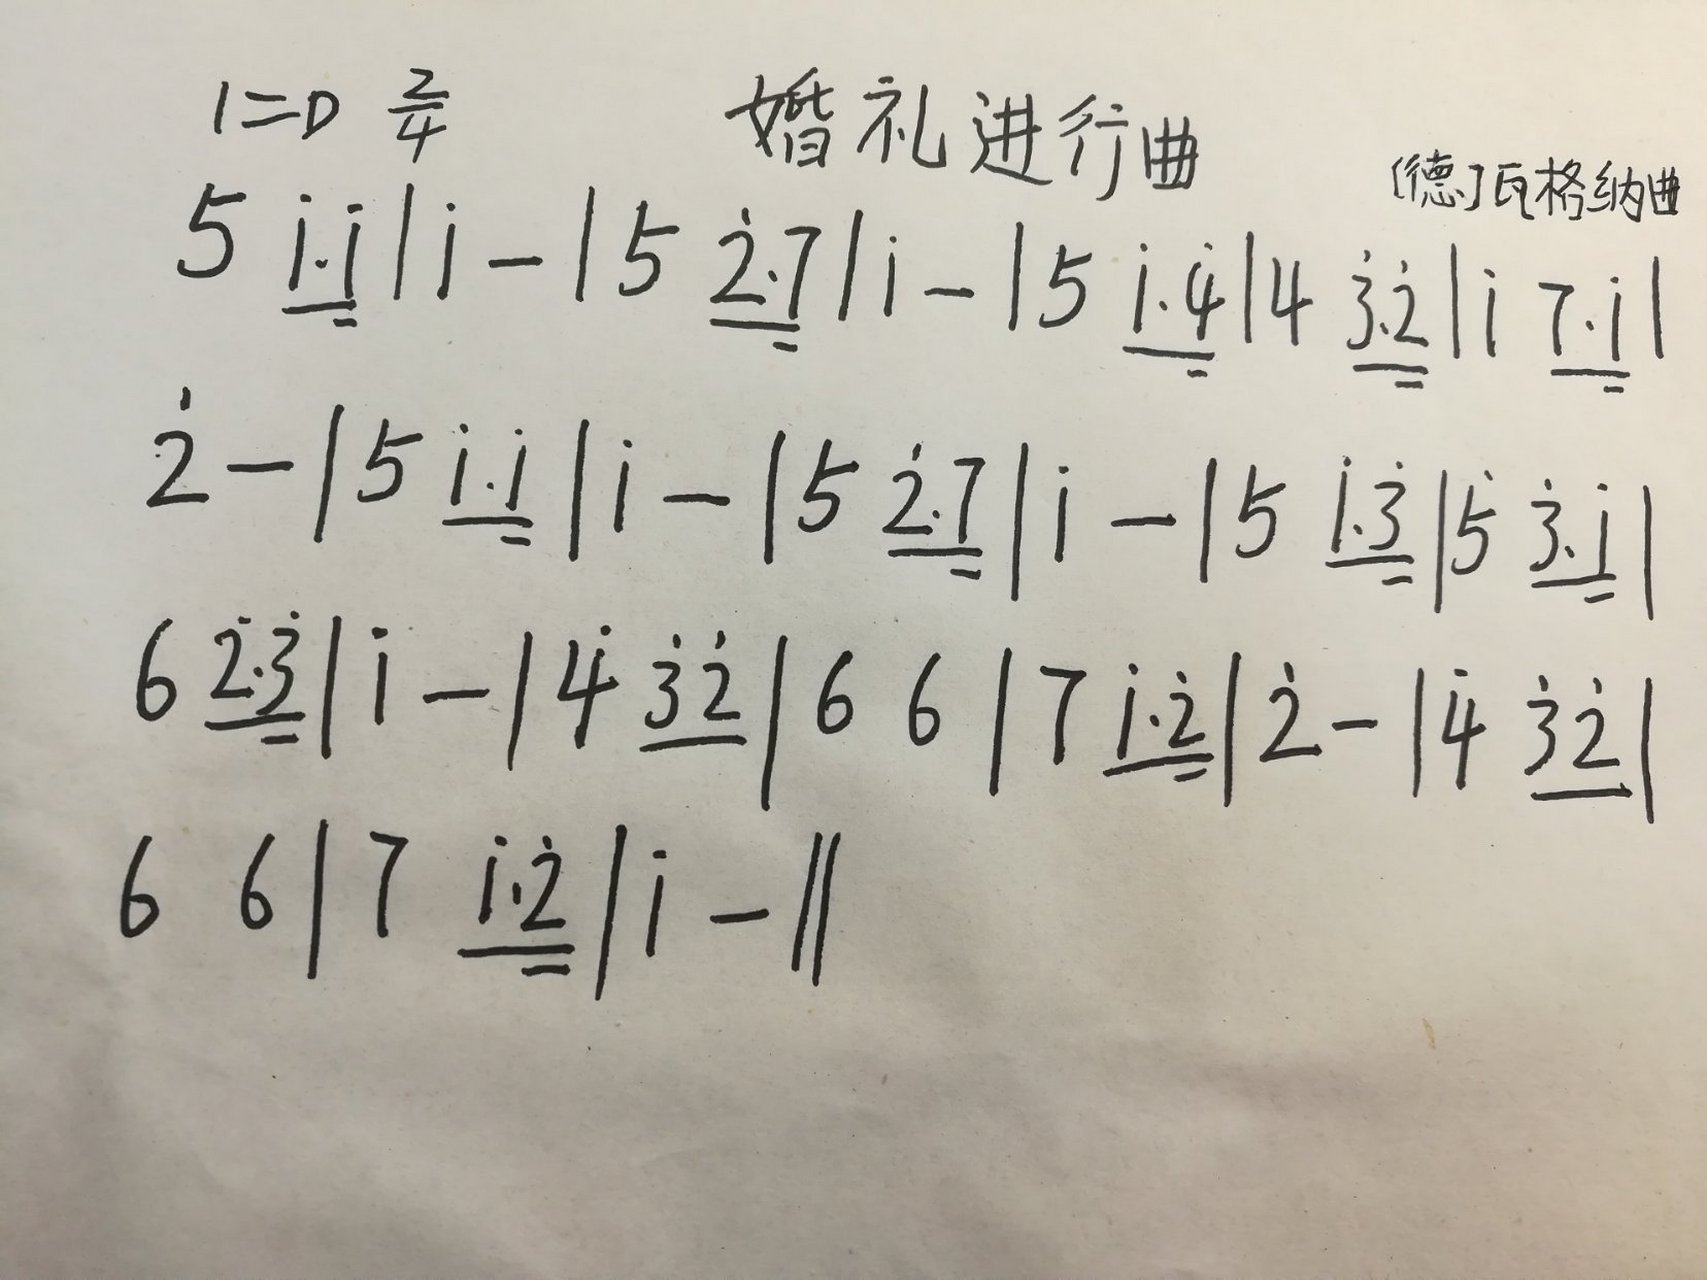 1=D 2/4 婚礼进行曲
[德]瓦格纳曲
5 i̲.i̲ | i – | 5 2̇.7 | i – | 5 i.4̇ | 4 3̇.2̇ | i 7.i |
2̇ – | 5 i.i | i – | 5 2̇.7 | i – | 5 i.3̇ | 5̇ 3̇.i |
6 2̇.3̇ | i – | 4̇ 3̇2̇ | 6 6 | 7 i.2̇ | 2̇ – | 4̇ 3̇2̇ |
6 6 | 7 i.2̇ | i – ‖